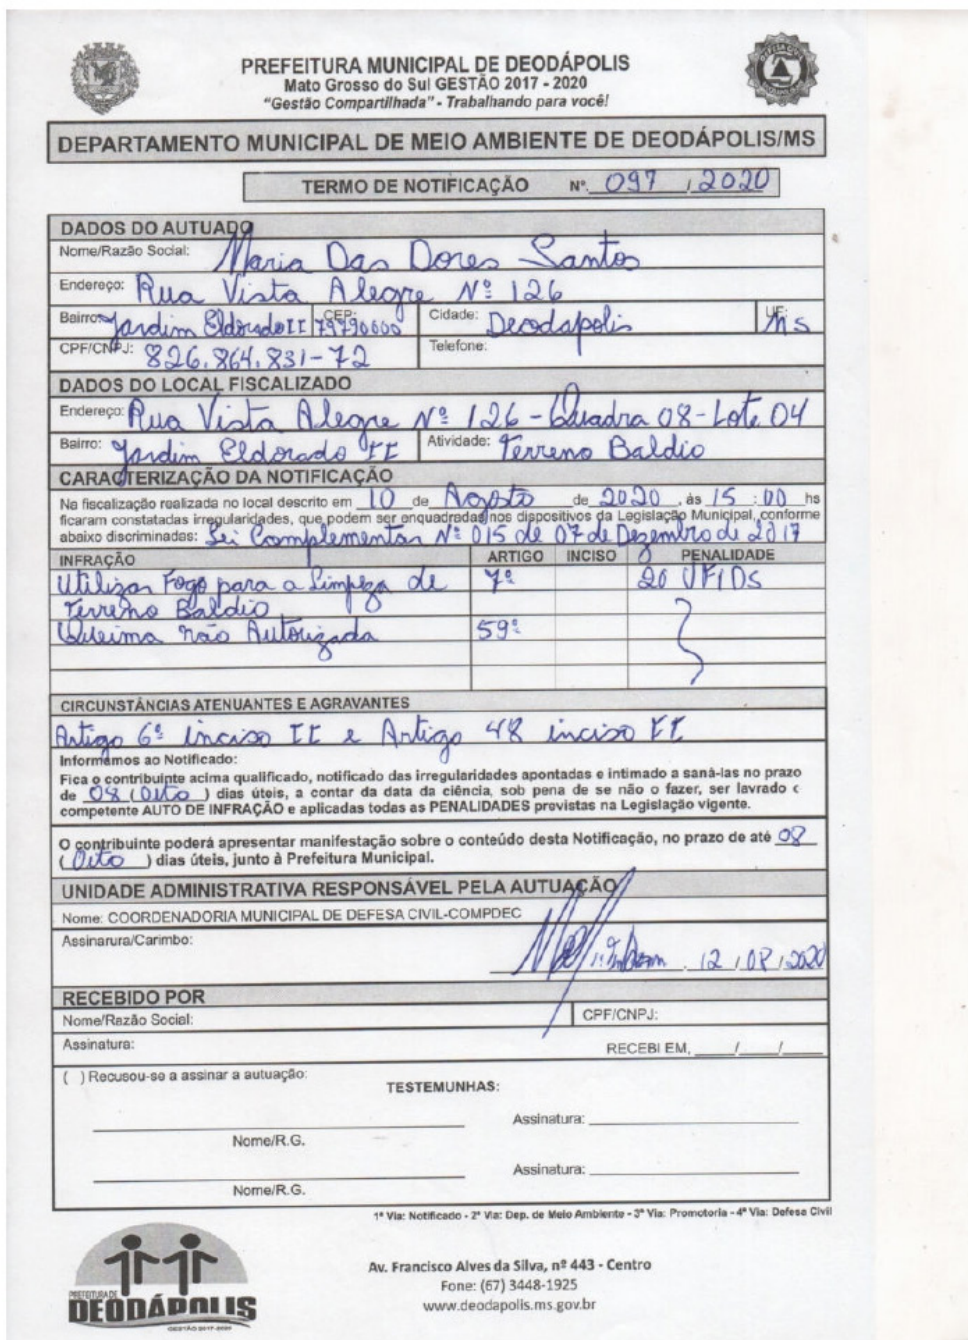 PREFEITURA MUNICIPAL DE DEODÁPOLIS
Mato Grosso do Sul GESTÃO 2017 - 2020
"Gestão Compartilhada" - Trabalhando para você!
DEFESA CIVIL
DEPARTAMENTO MUNICIPAL DE MEIO AMBIENTE DE DEODÁPOLIS/MS
TERMO DE NOTIFICAÇÃO Nº. 097 / 2020
DADOS DO AUTUADO
Nome/Razão Social: Maria Das Dores Santos
Endereço: Rua Vista Alegre Nº 126
Bairro: Jardim Eldorado II CEP: 79790000 Cidade: Deodapolis UF: MS
CPF/CNPJ: 826.864.831-72 Telefone:
DADOS DO LOCAL FISCALIZADO
Endereço: Rua Vista Alegre Nº 126 - Quadra 08 - Lote 04
Bairro: Jardim Eldorado II Atividade: Terreno Baldio
CARACTERIZAÇÃO DA NOTIFICAÇÃO
Na fiscalização realizada no local descrito em 10 de Agosto de 2020, às 15:00 hs
ficaram constatadas irregularidades, que podem ser enquadradas nos dispositivos da Legislação Municipal, conforme
abaixo discriminadas: Lei Complementar Nº 015 de 07 de Dezembro de 2017
INFRAÇÃO ARTIGO INCISO PENALIDADE
Utilizar Fogo para a Limpeza de 7º 20 UFIDS
Terreno Baldio
Queima não Autorizada 59º
CIRCUNSTÂNCIAS ATENUANTES E AGRAVANTES
Artigo 6º inciso II e Artigo 48 inciso II
Informamos ao Notificado:
Fica o contribuinte acima qualificado, notificado das irregularidades apontadas e intimado a saná-las no prazo
de 08 (Oito) dias úteis, a contar da data da ciência, sob pena de se não o fazer, ser lavrado c
competente AUTO DE INFRAÇÃO e aplicadas todas as PENALIDADES previstas na Legislação vigente.
O contribuinte poderá apresentar manifestação sobre o conteúdo desta Notificação, no prazo de até 08
(Oito) dias úteis, junto à Prefeitura Municipal.
UNIDADE ADMINISTRATIVA RESPONSÁVEL PELA AUTUAÇÃO
Nome: COORDENADORIA MUNICIPAL DE DEFESA CIVIL-COMPDEC
Assinarura/Carimbo: 12 / 08 / 2020
RECEBIDO POR
Nome/Razão Social: CPF/CNPJ:
Assinatura: RECEBI EM, ____/____/____
( ) Recusou-se a assinar a autuação:
TESTEMUNHAS:
Assinatura:
Nome/R.G.
Assinatura:
Nome/R.G.
1ª Via: Notificado - 2ª Via: Dep. de Meio Ambiente - 3ª Via: Promotoria - 4ª Via: Defesa Civil
PREFEITURA DE
DEODÁPOLIS
GESTÃO 2017-2020
Av. Francisco Alves da Silva, nº 443 - Centro
Fone: (67) 3448-1925
www.deodapolis.ms.gov.br